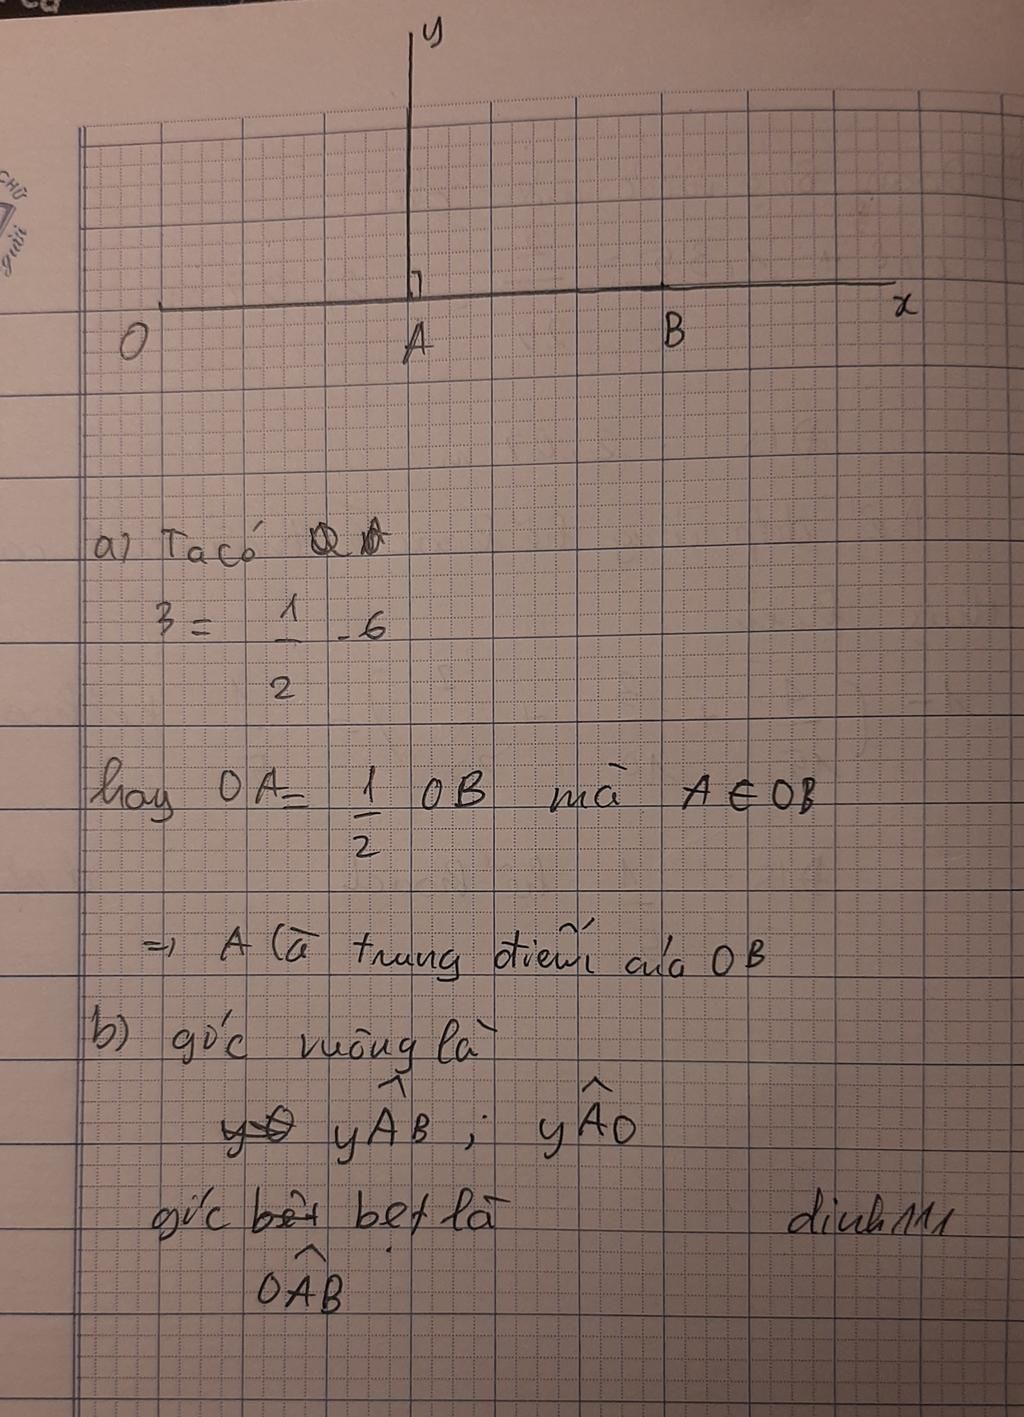 y
O A B x
a) Ta có
3 = 1/2 . 6
hay OA = 1/2 OB mà A ∈ OB
=> A là trung điểm của OB
b) góc vuông là
yÂB ; yÂO
góc bẹt là
dinh111
OÂB
CHỮ
gười